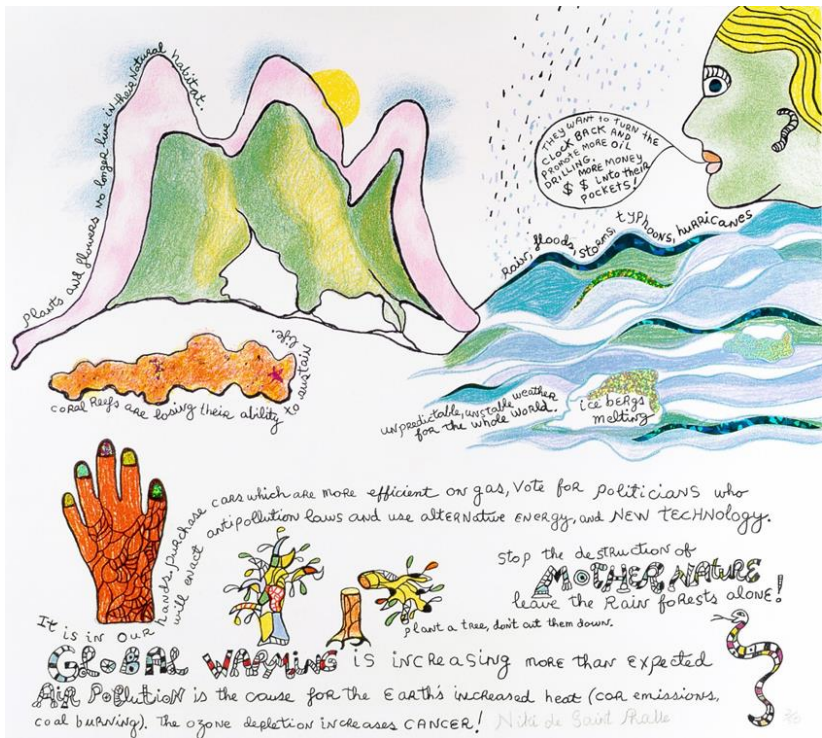 plants and flowers no longer live in their natural habitat.
THEY WANT TO TURN THE
CLOCK BACK AND
PROMOTE MORE OIL
DRILLING.
MORE MONEY
$ $ into their
POCKETS!
Rain, floods, storms, typhoons, hurricanes
coral Reefs are losing their ability to sustain
life.
unpredictable, unstable weather
for the whole world.
ice bergs
melting
It is in our hands, purchase cars which are more efficient on gas, Vote for politicians who
will enact antipollution laws and use alternative energy, and NEW TECHNOLOGY.
Stop the destruction of
MOTHER NATURE
leave the Rain forests alone!
plant a tree, don't cut them down.
GLOBAL WARMING is increasing more than expected
AIR POLLUTION is the cause for the EARTH'S increased heat (car emissions,
coal burning). The ozone depletion increases CANCER! Niki de Saint Phalle